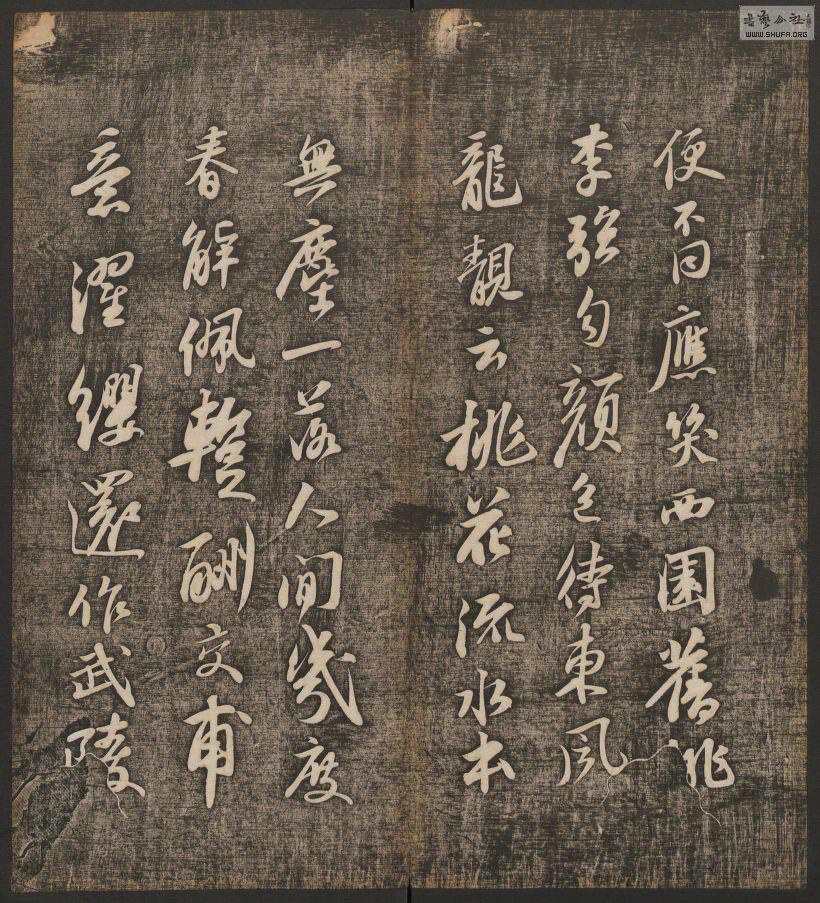 便不同應笑西園舊桃
李強勻顏色待東風
龍靚云桃花流水本
無塵一落人間幾度
春解佩蹔酬交甫
意濯纓還作武陵
書藝公社
WWW.SHUFA.ORG